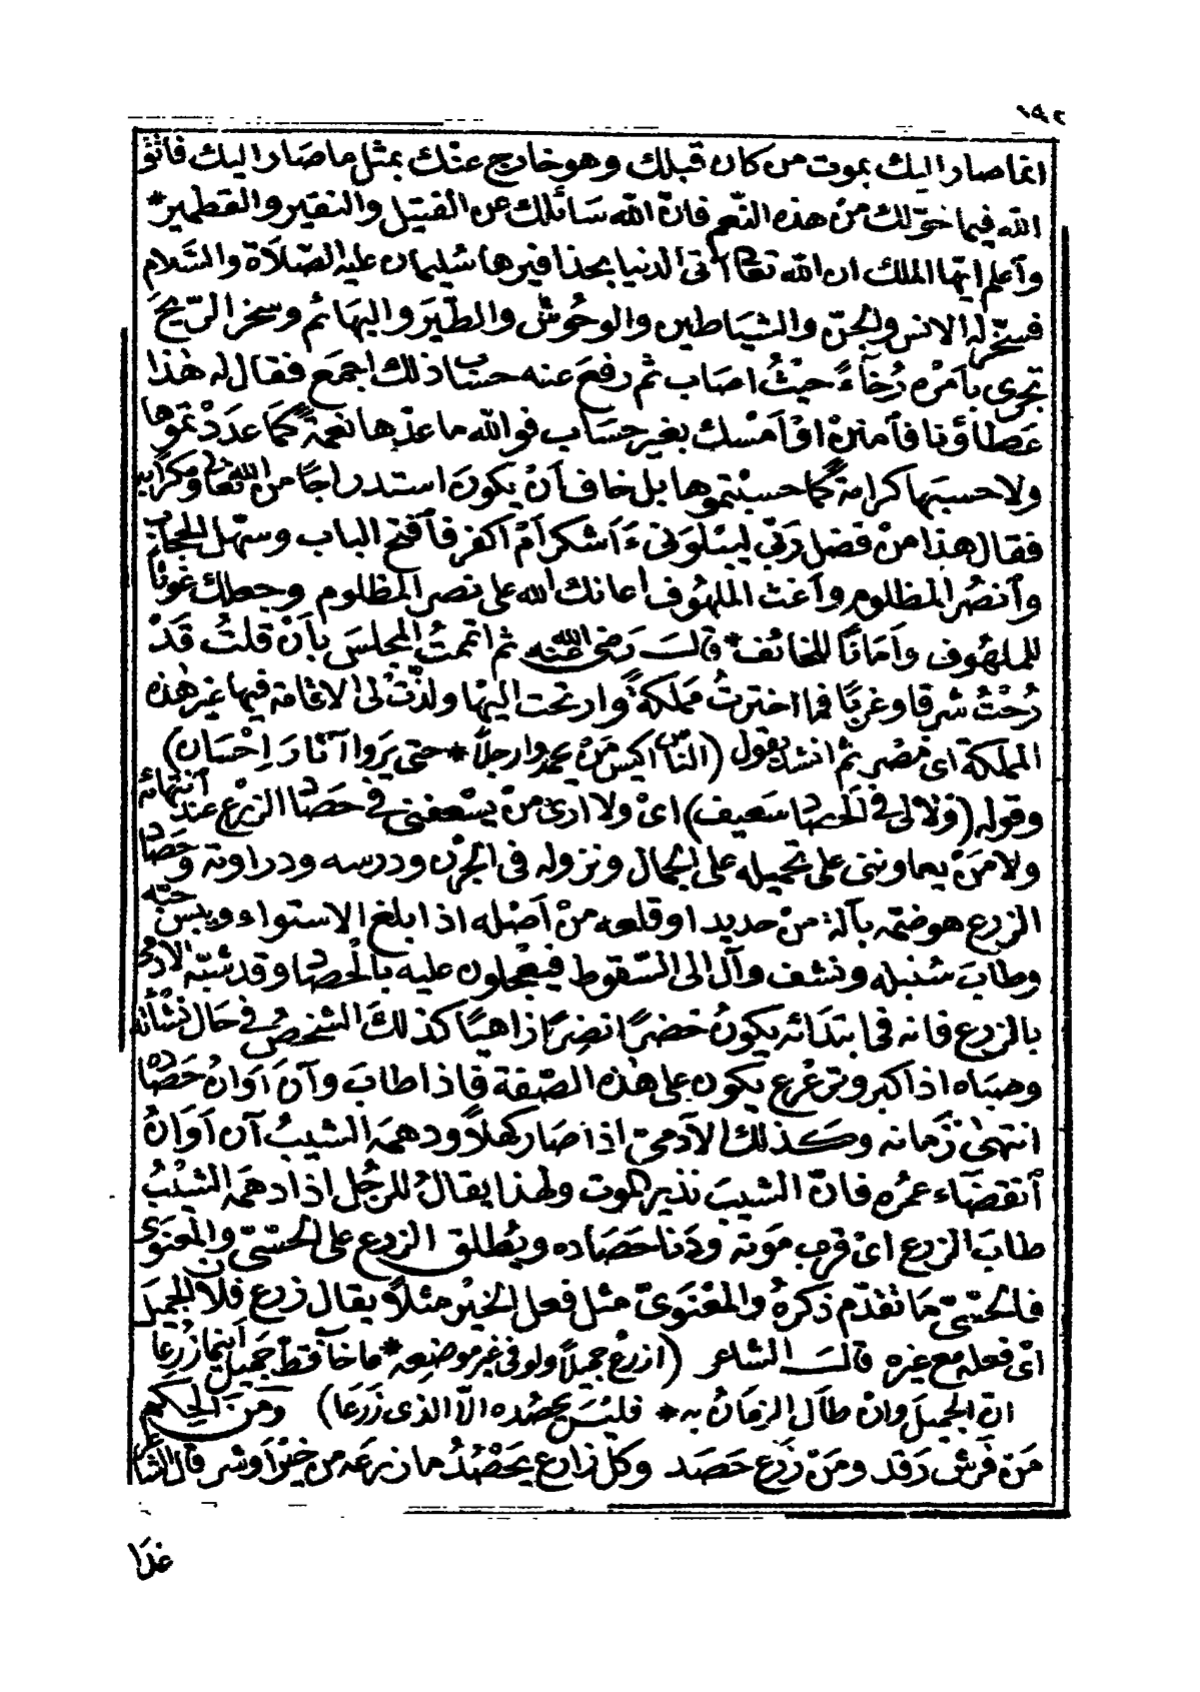 ١٩٢
انما صار اليك بموت من كان قبلك وهو خارج عنك بمثل ما صار اليك فاتق
الله فيما خوّلك من هذه النّعم فانّ الله سَائلك عن الفتيل والنقير والقطمير*
وآعلم ايّها الملك ان الله تعالى آتى الدنيا بحذافيرها سُليمان عليه الصّلاة والسَّلام
فسخّر له الانس والجنّ والشيَاطين والوحُوش والطّيَر والبهَائم وسخر الرّيحَ
تجرى بأمْره رُخآءً حيْثُ اصَاب ثم رفعَ عنه حسَاب ذلك اجمَع فقال له هٰذا
عَطاؤنا فآمنن اوْ آمْسك بغير حسَاب فوالله ما عدّها نعمةً كمَا عَددْتموها
ولا حسبَها كرامةً كما حسبْتموها بل خاف أنْ يكونَ استدراجًا من الله تعالى ومكرًا به
فقال هذا منْ فضل رَبّي ليبْلوَنى ءَاَشكر اَمْ اكفر فآفتح الباب وسهّل الحجاب
وآنصُر المظلوم وآغث الملهُوف اعانك الله على نصر المظلوم وجعلك غوثًا
للملهُوف وآمَانًا للخائف* قالَ رَضى الله عنه ثم اتممتُ المجلسَ بأنْ قلتُ قَدْ
دُحْتُ شرقا وغربًا فما اخترتُ مَملكةً وارتحت اليها ولذّتْ لى الاقامة فيها غير هٰذه
المملكة اى مصْر ثمّ انشد يقول (النّاس اكيس مَنْ يحمدوا رجلاً* حتى يَروا آثارَ اِحْسَان)
وقوله (ولا لى فى الحَصاد سَعيف) اىْ ولا ارى منْ يسْعفنى فى حَصَاد الزرْع عند آنتهائه
ولا مَنْ يعاوننى على تحميله على الجمال ونزوله فى الجرْن ودرسه ودراوته وَحصَاد
الزرع هو ضمّه بآلة منْ حديد او قلعه منْ آصْله اذا بلغ الاستواء ويبس حبّه
وطابَ سُنبله ونشف وآل الى السّقوط فيعْجلون عليه بالْحصاد وقد شبّه الآدمى
بالزرع فانه فى ابتدائه يكونُ خضرًا نضِرًا زاهيًا كذلكَ الشخصُ فى حَال نشْأته
وصبَاه اذا كبر وترعْرع يكون على هٰذه الصّفة فاذا طابَ وآنَ آوَانُ حَصَاده
انتهىٰ زَمانه وكذلك الآدمىّ اذا صَار كهلاً ودهمَه الشيبُ آن اَوَانُ
آنقضَاء عمُره فانّ الشيبَ نذير الموت ولهٰذا يقالُ للرجُل اذا دهمَه الشيْبُ
طابَ الزرع اىْ قربَ مَوته ودَنا حَصَاده ويُطلق الزرع على الحسّىّ والمعْنوىّ
فالحسّىّ مَا تقدّم ذكرهُ والمعْنَوىّ مثل فعل الخيْر مثلاً يقال زرعَ فلانٌ الجميل
اىْ فعله مع غيره قالَ الشاعر (ازرعْ جميلاً ولو فى غير موضِعه* ما خابَ قطّ جَميلٌ اَينما زُرعَا
انّ الجميلَ وانْ طآل الزمَانُ به* فليْسَ يحصُده الاّ الذى زَرَعا) ومَنَ الحِكم
مَنْ فَرَش رَقد ومَنْ زَرَع حَصَد وكل زارع يَحْصُدُ ما زرعَه من خيْرٍ اَوْ شر قالَ الشاعر
غدًا